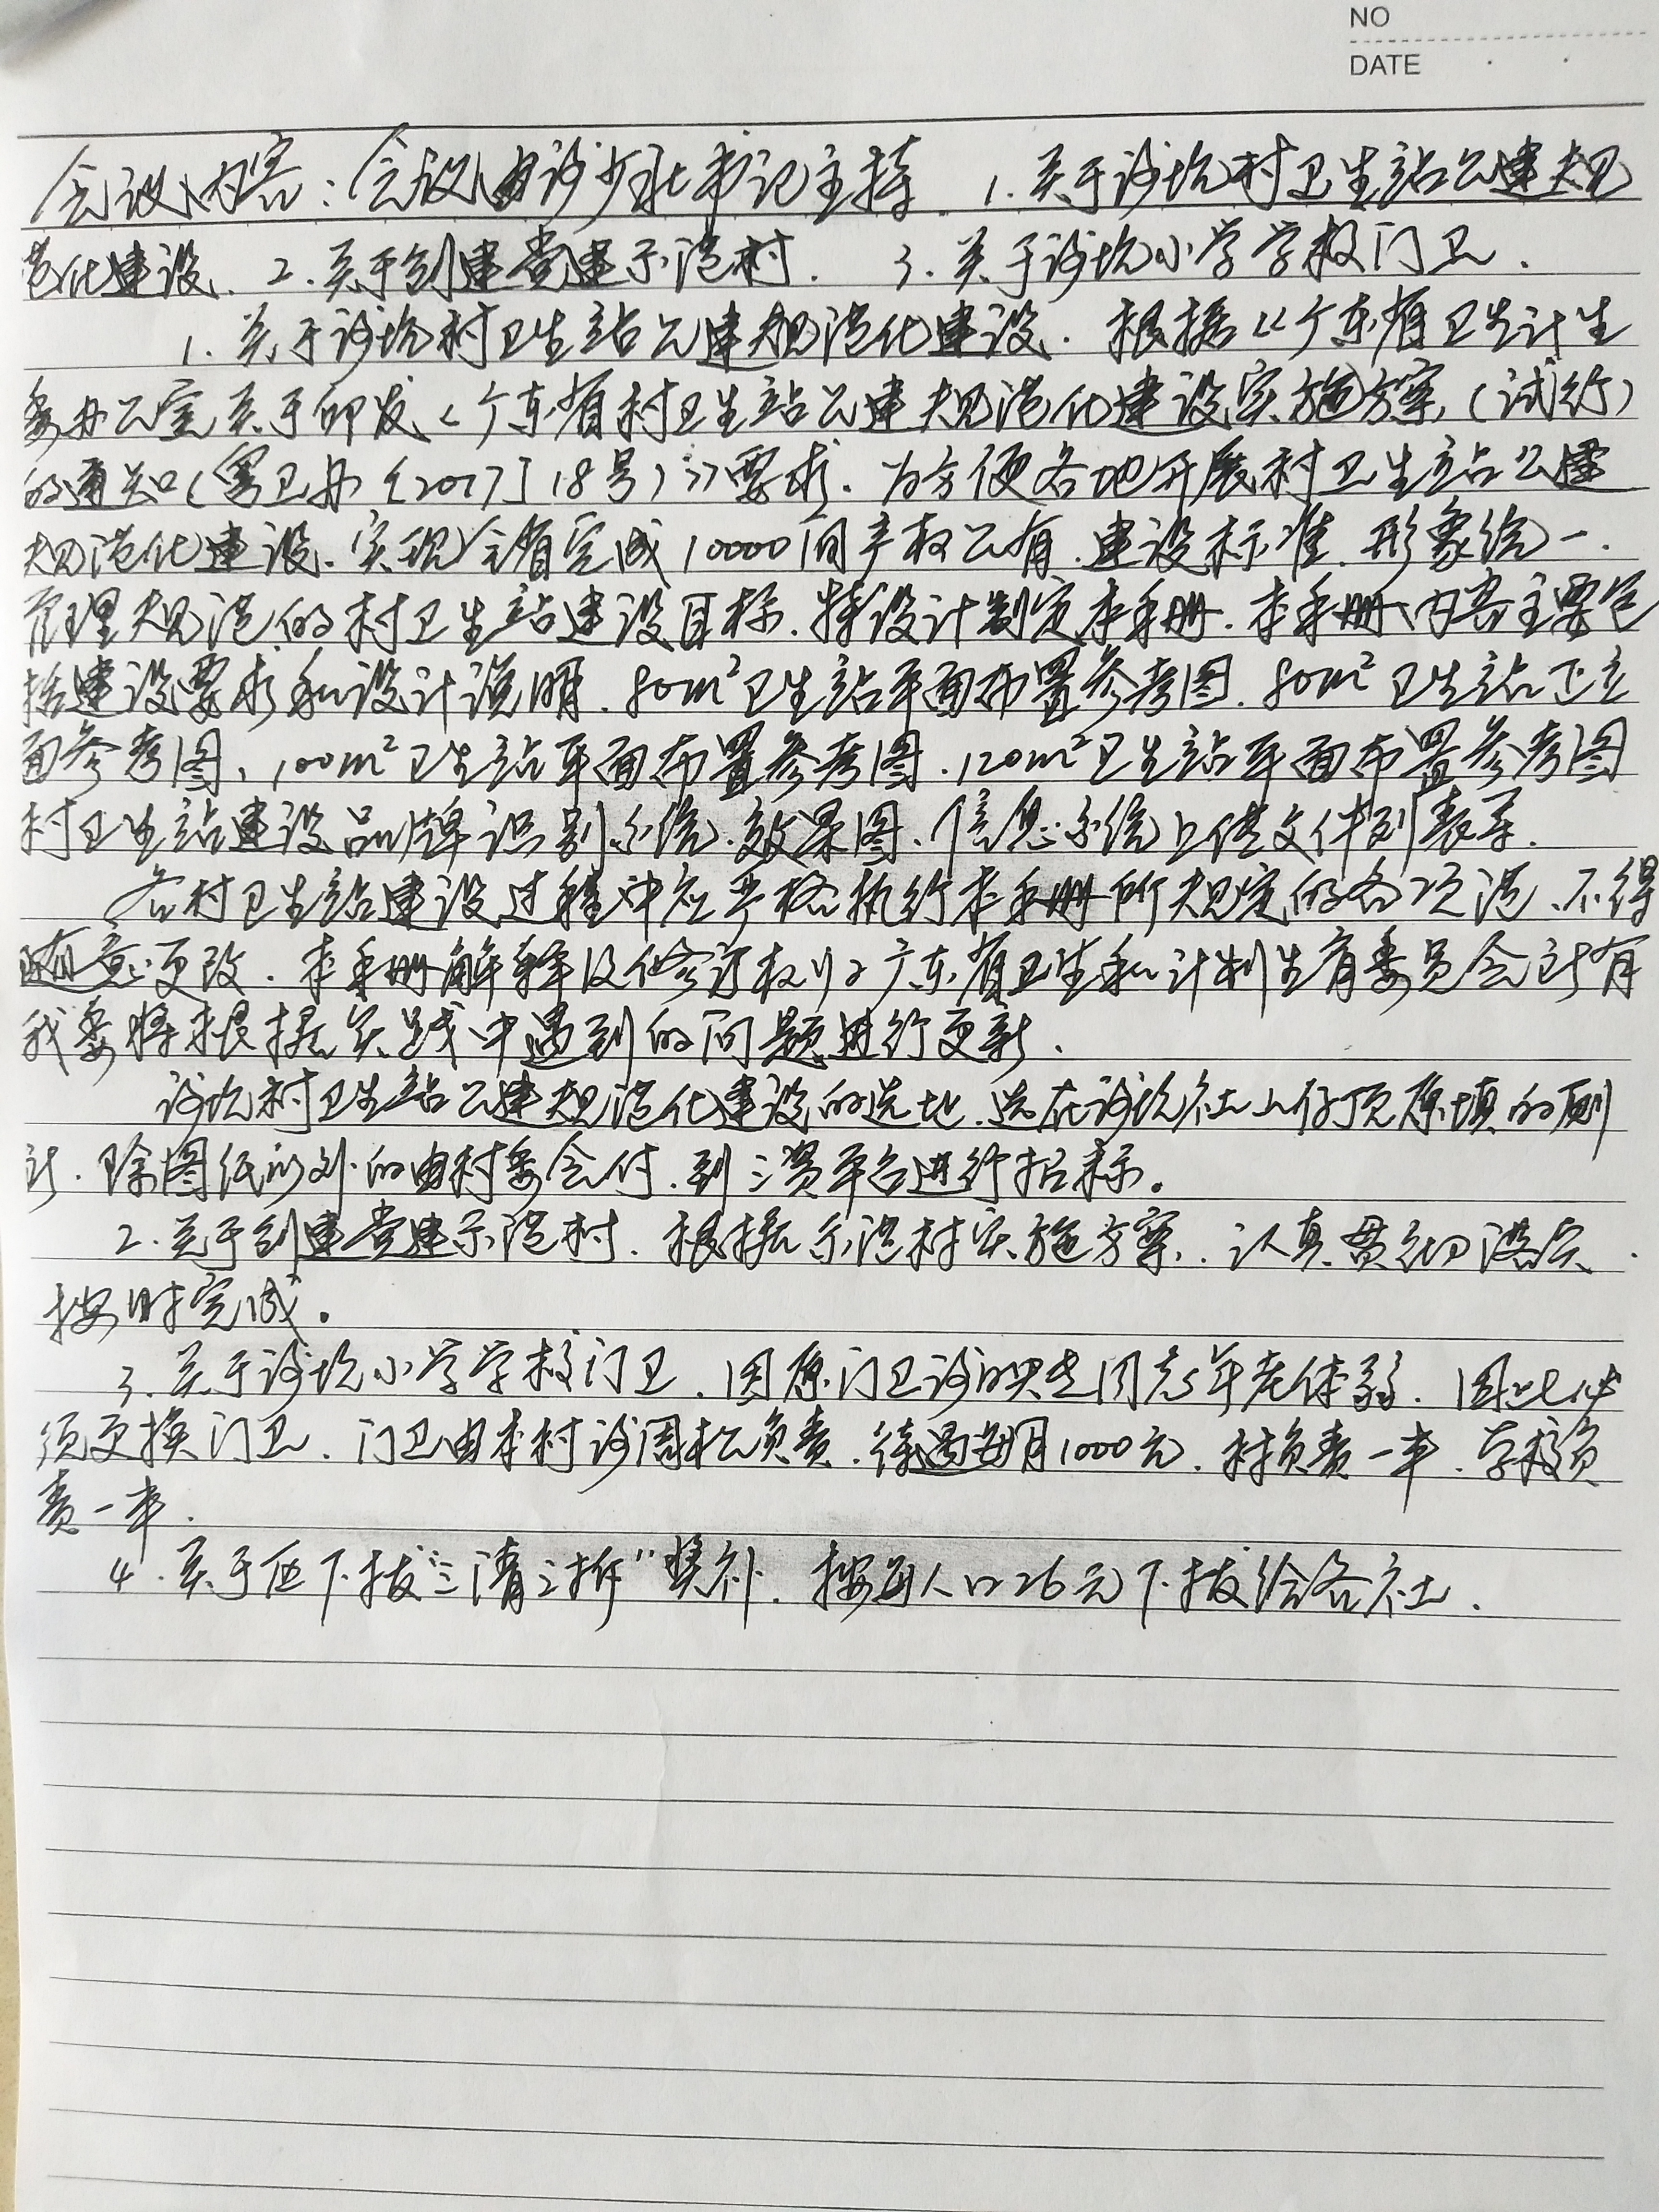 NO
DATE
会议内容:会议由许少永书记主持. 1.关于许坑村卫生站公建规
范化建设. 2.关于创建党建示范村. 3.关于许坑小学学校门卫.
1.关于许坑村卫生站公建规范化建设.根据《广东省卫生计生
委办公室关于印发《广东省村卫生站公建规范化建设实施方案(试行)
的通知(粤卫办〔2017〕18号)》要求.为方便各地开展村卫生站公建
规范化建设.实现全省完成10000间产权公有.建设标准.形象统一.
管理规范的村卫生站建设目标.特设计制定本手册.本手册内容主要包
括建设要求和设计说明.80m²卫生站平面布置参考图.80m²卫生站正立
面参考图、100m²卫生站平面布置参考图.120m²卫生站平面布置参考图
村卫生站建设品牌识别系统.效果图、信息系统上传文件列表等.
各村卫生站建设过程中应严格执行本手册所规定的各项范.不得
随意更改.本手册解释及修订权归广东省卫生和计划生育委员会所有
我委将根据实践中遇到的问题进行更新.
许坑村卫生站公建规范化建设的选地.选在许坑社山仔顶原填的厕
所.除图纸以外的由村委会付.到三资平台进行招标。
2.关于创建党建示范村.根据示范村实施方案.认真贯彻落实.
按时完成。
3.关于许坑小学学校门卫.因原门卫许同志年老体弱.因此必
须更换门卫.门卫由本村许周松负责.待遇每月1000元.村负责一半.学校负
责一半.
4.关于下拨"三清三拆"奖补.按每人口26元下拨给各社.